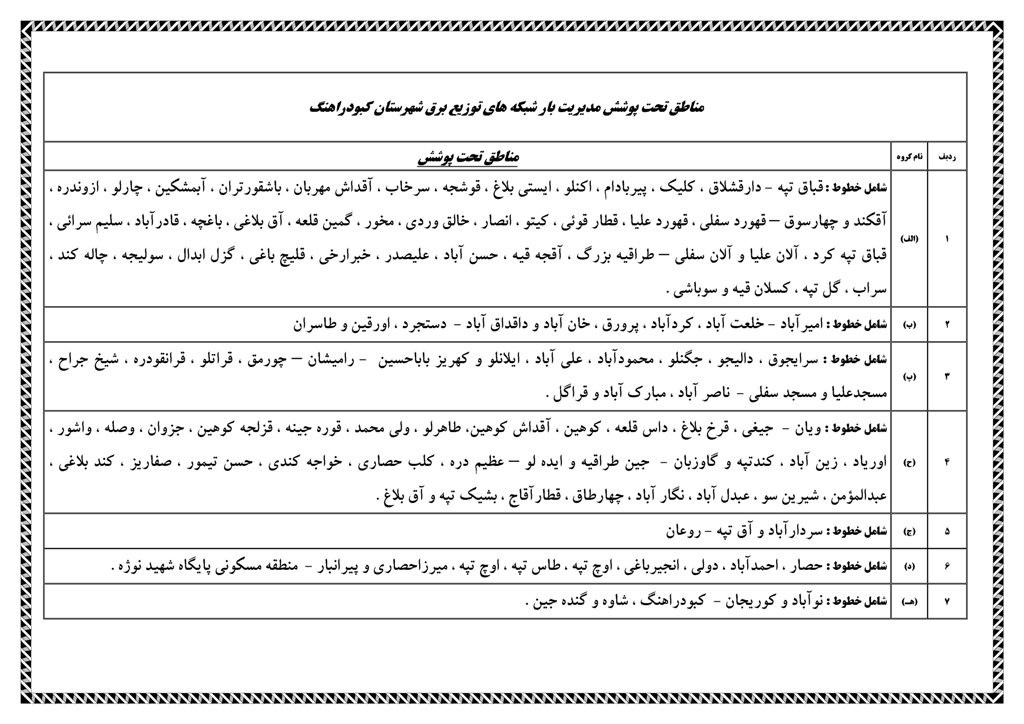 مناطق تحت پوشش مدیریت بار شبکه های توزیع برق شهرستان کبودراهنگ
ردیف نام گروه مناطق تحت پوشش
۱ (الف) شامل خطوط : قباق تپه – دارقشلاق ، کلیک ، پیربادام ، اکنلو ، ایستی بلاغ ، قوشجه ، سرخاب ، آقداش مهربان ، باشقورتران ، آبمشکین ، چارلو ، ازوندره ،
آقکند و چهارسوق – قهورد سفلی ، قهورد علیا ، قطار قوئی ، کیتو ، انصار ، خالق وردی ، مخور ، گمین قلعه ، آق بلاغی ، باغچه ، قادرآباد ، سلیم سرائی ،
قباق تپه کرد ، آلان علیا و آلان سفلی – طراقیه بزرگ ، آقجه قیه ، حسن آباد ، علیصدر ، خبارارخی ، قلیچ باغی ، گزل ابدال ، سولیجه ، چاله کند ،
سراب ، گل تپه ، کسلان قیه و سوباشی .
۲ (ب) شامل خطوط : امیرآباد – خلعت آباد ، کردآباد ، پرورق ، خان آباد و داقداق آباد – دستجرد ، اورقین و طاسران
۳ (پ) شامل خطوط : سرایجوق ، دالیجو ، جگنلو ، محمودآباد ، علی آباد ، ایلانلو و کهریز باباحسین – رامیشان – چورمق ، قراتلو ، قرانقودره ، شیخ جراح ،
مسجدعلیا و مسجد سفلی – ناصر آباد ، مبارک آباد و قراگل .
۴ (ج) شامل خطوط : ویان – جیغی ، قرخ بلاغ ، داس قلعه ، کوهین ، آقداش کوهین، طاهرلو ، ولی محمد ، قوره جینه ، قزلجه کوهین ، جزوان ، وصله ، واشور ،
اوریاد ، زین آباد ، کندتپه و گاوزبان – جین طراقیه و ایده لو – عظیم دره ، کلب حصاری ، خواجه کندی ، حسن تیمور ، صفاریز ، کند بلاغی ،
عبدالمؤمن ، شیرین سو ، عبدل آباد ، نگار آباد ، چهارطاق ، قطارآقاج ، بشیک تپه و آق بلاغ .
۵ (چ) شامل خطوط : سردارآباد و آق تپه – روعان
۶ (د) شامل خطوط : حصار ، احمدآباد ، دولی ، انجیرباغی ، اوچ تپه ، طاس تپه ، اوچ تپه ، میرزاحصاری و پیرانبار – منطقه مسکونی پایگاه شهید نوژه .
۷ (هـ) شامل خطوط : نوآباد و کوریجان – کبودراهنگ ، شاوه و گنده جین .